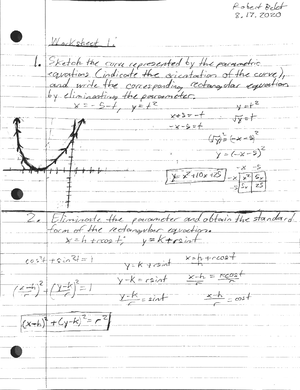 Robert Belet
8.17.2020
Worksheet 1:
1. Sketch the curve represented by the parametric
equations (indicate the orientation of the curve),
and write the corresponding rectangular equation
by eliminating the parameter.
x = -5-t, y = t²
x+5 = -t
-x-5 = t
y = t²
√y = t
(√y)² = (-x-5)²
y = (-x-5)²
y = x²+10x+25
-x -5
-x x² 5x
-5 5x 25
2. Eliminate the parameter and obtain the standard
form of the rectangular equation.
x = h + r cos t; y = k + r sin t
cos² t + sin² t = 1
y = k + r sin t
x = h + r cos t
y-k = r sin t